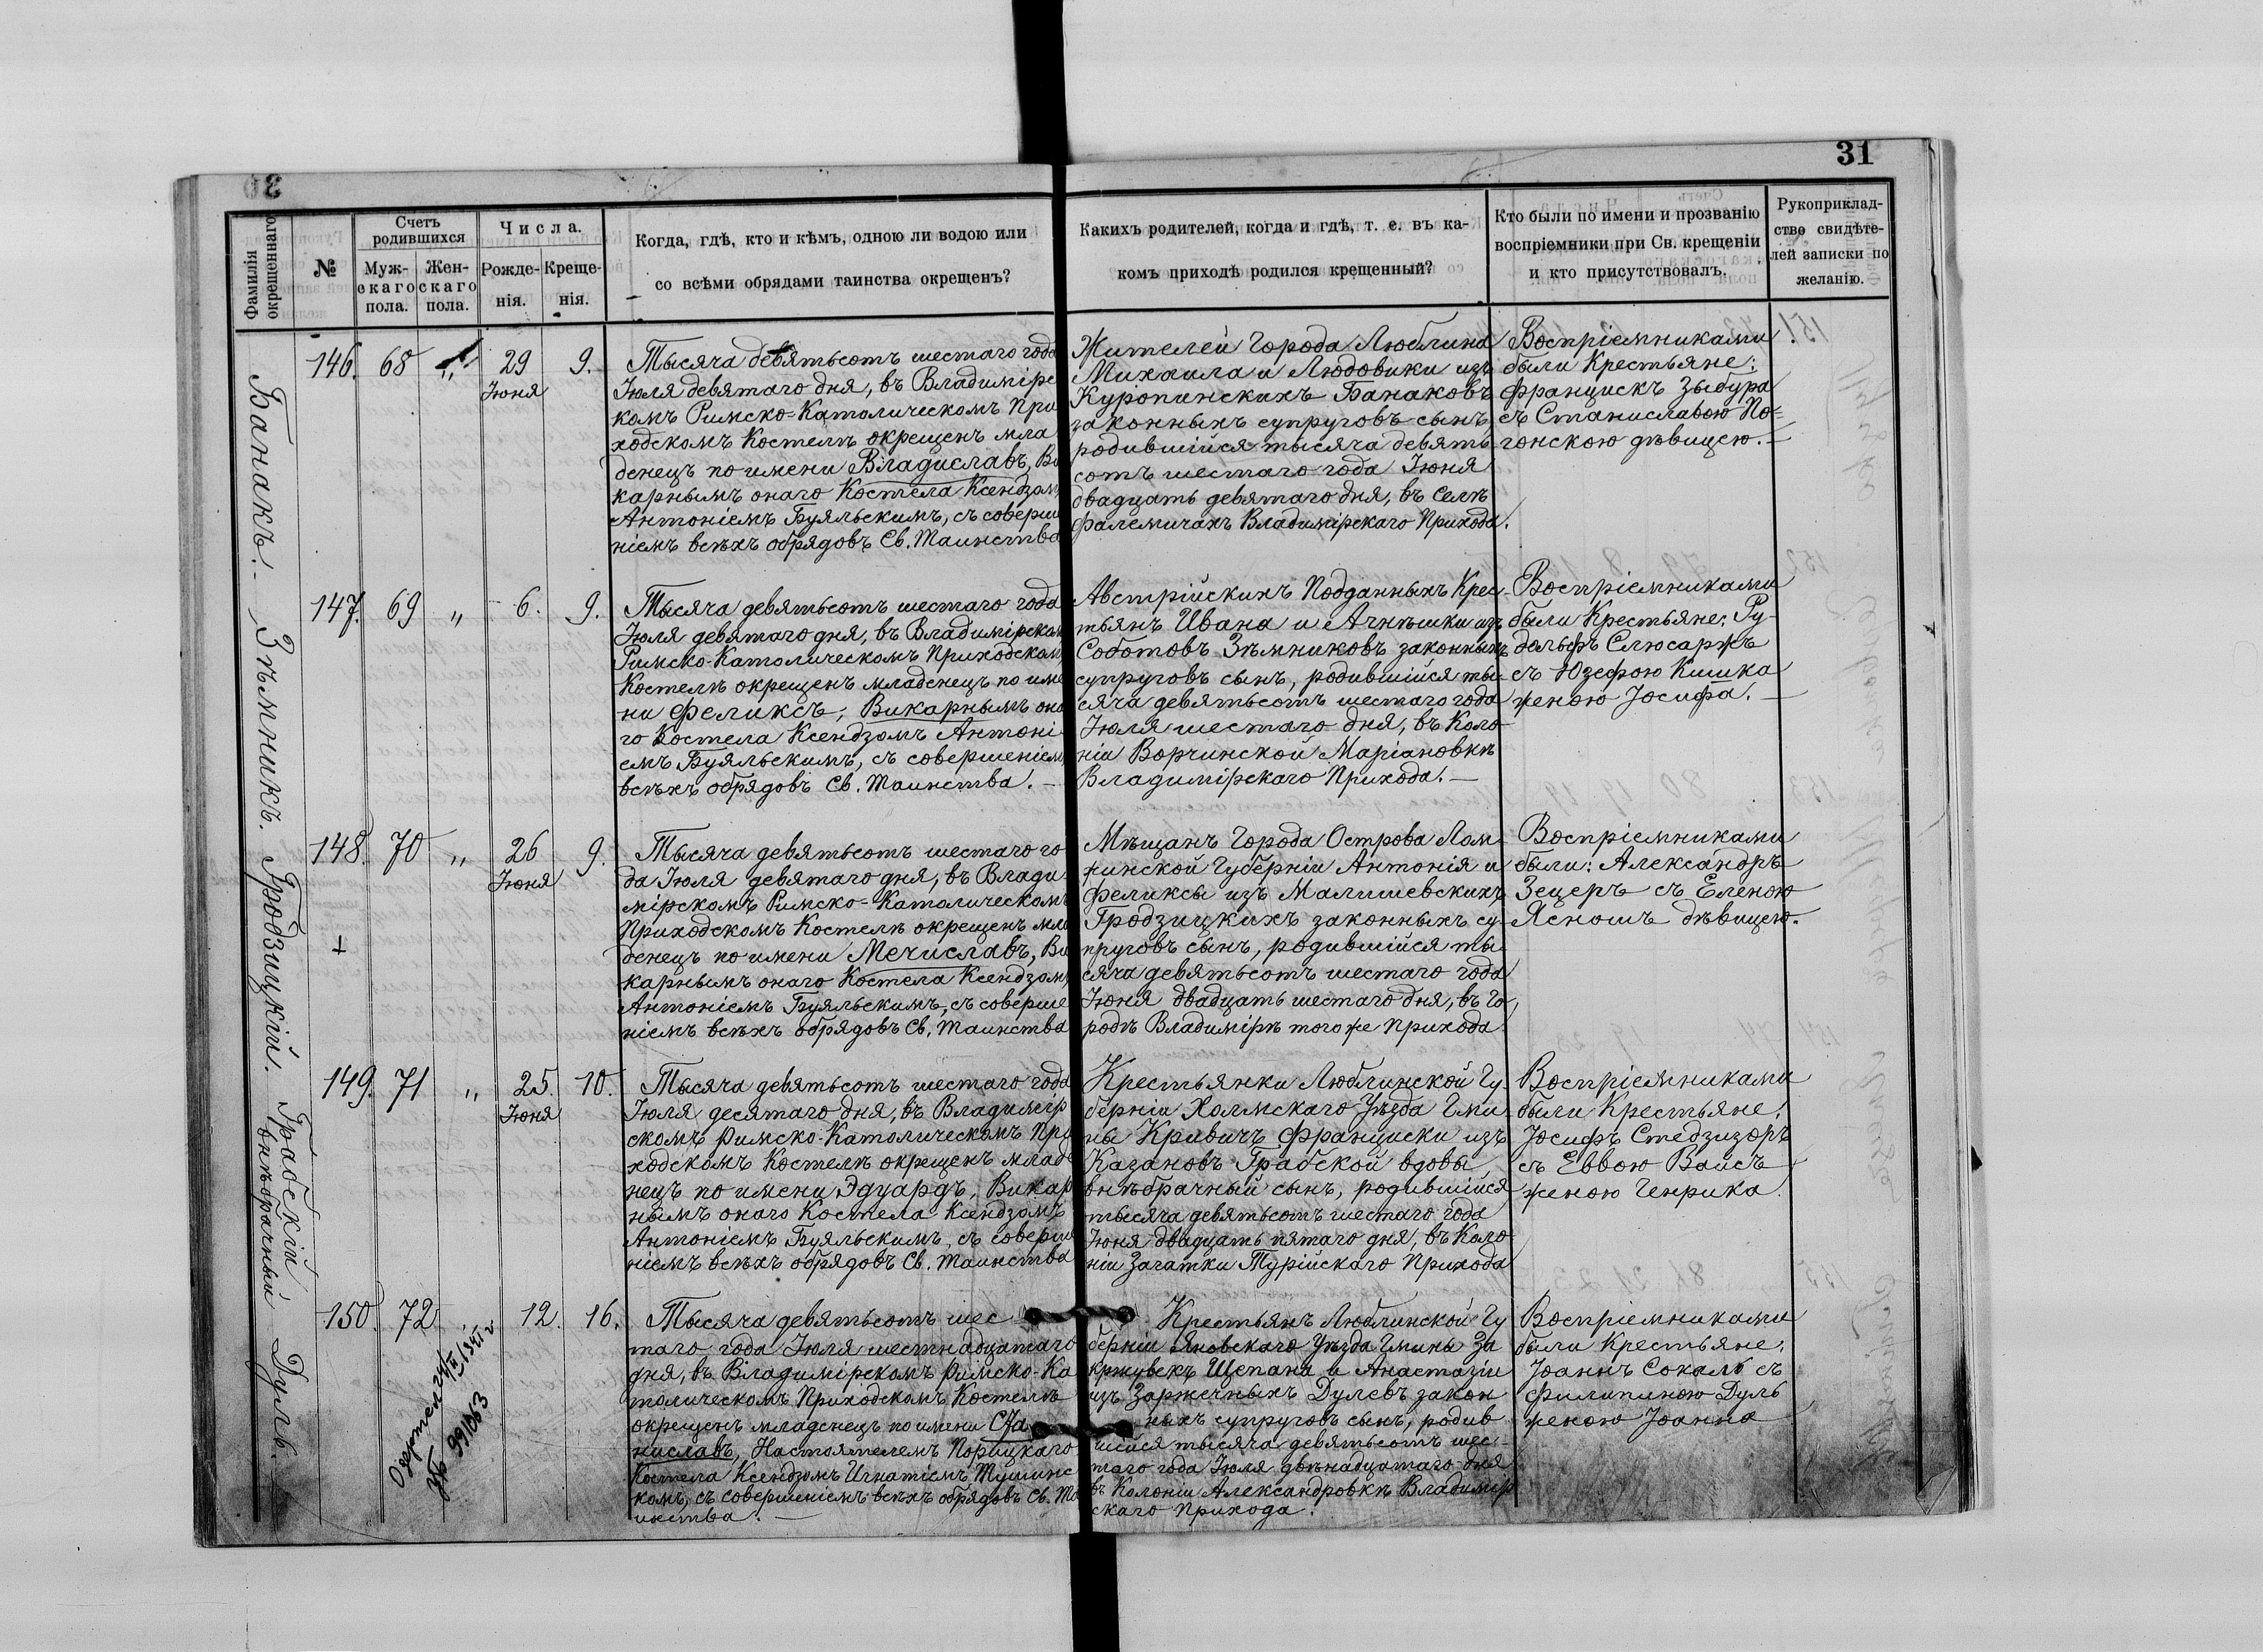 31
Фамилія окрещеннаго
№
Счетъ родившихся
Муж-скаго пола.
Жен-скаго пола.
Числа.
Рожде-нія.
Креще-нія.
Когда, гдѣ, кто и кѣмъ, одною ли водою или
со всѣми обрядами таинства окрещенъ?
Какихъ родителей, когда и гдѣ, т. е. въ ка-
комъ приходѣ родился крещенный?
Кто были по имени и прозванію
воспріемники при Св. крещеніи
и кто присутствовалъ.
Рукоприклад-
ство свидѣте-
лей записки по
желанію.
Банакъ.
146. 68 „ 29 Іюня 9.
Тысяча девятьсотъ шестаго года
Іюля девятаго дня, въ Владимірс
комъ Римско-Католическомъ При
ходскомъ Костелѣ окрещенъ мла
денецъ по имени Владиславъ, Ви
карнымъ онаго Костела Ксендзомъ
Антоніемъ Буяльскимъ, съ соверше
ніемъ всѣхъ обрядовъ Св. Таинства
Жителей Города Люблина
Михаила и Людовики изъ
Куропинскихъ Банаковъ
законныхъ супруговъ сынъ,
родившійся тысяча девять-
сотъ шестаго года Іюня
двадцать девятаго дня, въ селѣ
Фалемичахъ Владимірскаго Прихода.
Воспріемниками
были Крестьяне:
Францискъ Зыбура
съ Станиславою По-
гонскою дѣвицею.—
Зѣмникъ.
147. 69 „ 6. 9.
Тысяча девятьсотъ шестаго года
Іюля девятаго дня, въ Владимірском
Римско-Католическомъ Приходском
Костелѣ окрещенъ младенецъ по име
ни Феликсъ, Викарнымъ она
го Костела Ксендзомъ Антоні
емъ Буяльскимъ, съ совершеніем
всѣхъ обрядовъ Св. Таинства.—
Австрійскихъ Подданныхъ Крес-
тьянъ Ивана и Агнѣшки изъ
Соботовъ Зѣмниковъ законныхъ
супруговъ сынъ, родившійся ты-
сяча девятьсотъ шестаго года
Іюля шестаго дня, въ Коло-
ніи Ворчинской Маріановкѣ
Владимірскаго Прихода.—
Воспріемниками
были Крестьяне: Ру-
дольфъ Слюсаржъ
съ Юзефою Кишка
женою Іосифа.—
Гродзицкій.
148. 70 „ 26 Іюня 9.
+
Тысяча девятьсотъ шестаго го
да Іюля девятаго дня, въ Влади
мірскомъ Римско-Католическомъ
Приходскомъ Костелѣ окрещенъ мла
денецъ по имени Мечиславъ, Ви
карнымъ онаго Костела Ксендзомъ
Антоніемъ Буяльскимъ, съ соверше
ніемъ всѣхъ обрядовъ Св. Таинства
Мѣщанъ Города Острова Лом-
жинской Губерніи Антонія и
Феликсы изъ Малишевскихъ
Гродзицкихъ законныхъ су-
пруговъ сынъ, родившійся ты-
сяча девятьсотъ шестаго года
Іюня двадцать шестаго дня, въ Го-
родѣ Владимірѣ того же прихода
Воспріемниками
были: Александръ
Зецеръ съ Еленою
Ясношъ дѣвицею.
Грабскій внѣбрачный
149. 71 „ 25. Іюня 10.
Тысяча девятьсотъ шестаго года
Іюля десятаго дня, въ Владимір
скомъ Римско-Католическомъ При
ходскомъ Костелѣ окрещенъ младе
нецъ по имени Эдуардъ, Викар
нымъ онаго Костела Ксендзомъ
Антоніемъ Буяльскимъ, съ соверше
ніемъ всѣхъ обрядовъ Св. Таинства
Крестьянки Люблинской Гу-
берніи Холмскаго Уѣзда Гми-
ны Кривичъ Франциски изъ
Казановъ Грабской вдовы,
внѣбрачный сынъ, родившійся
тысяча девятьсотъ шестаго года
Іюня двадцать пятаго дня, въ Коло-
ніи Загатки Турійскаго Прихода
Воспріемниками
были Крестьяне:
Іосифъ Стедзизоръ
съ Еввою Вайсъ
женою Генрика.
Дуль.
150. 72 „ 12. 16.
Тысяча девятьсотъ шес
таго года Іюля шестнадцатаго
дня, въ Владимірскомъ Римско-Ка
толическомъ Приходскомъ Костелѣ
окрещенъ младенецъ по имени Ста
ниславъ, Настоятелемъ Порицкаго
Костела Ксендзомъ Игнатіемъ Тушинс
комъ, съ совершеніемъ всѣхъ обрядовъ Св. Та
инства.—
Крестьянъ Люблинской Гу
берніи Яновскаго Уѣзда Гмины За
кржувекъ Щепана и Анастазіи
изъ Заржечныхъ Дулевъ закон
ныхъ супруговъ сынъ, родив
шійся тысяча девятьсотъ шес-
таго года Іюля двѣнадцатаго дня
въ Колоніи Александровкѣ Владимір
скаго прихода.
Воспріемниками
были Крестьяне:
Іоаннъ Сокалъ съ
Филипиною Дуль
женою Іоанна